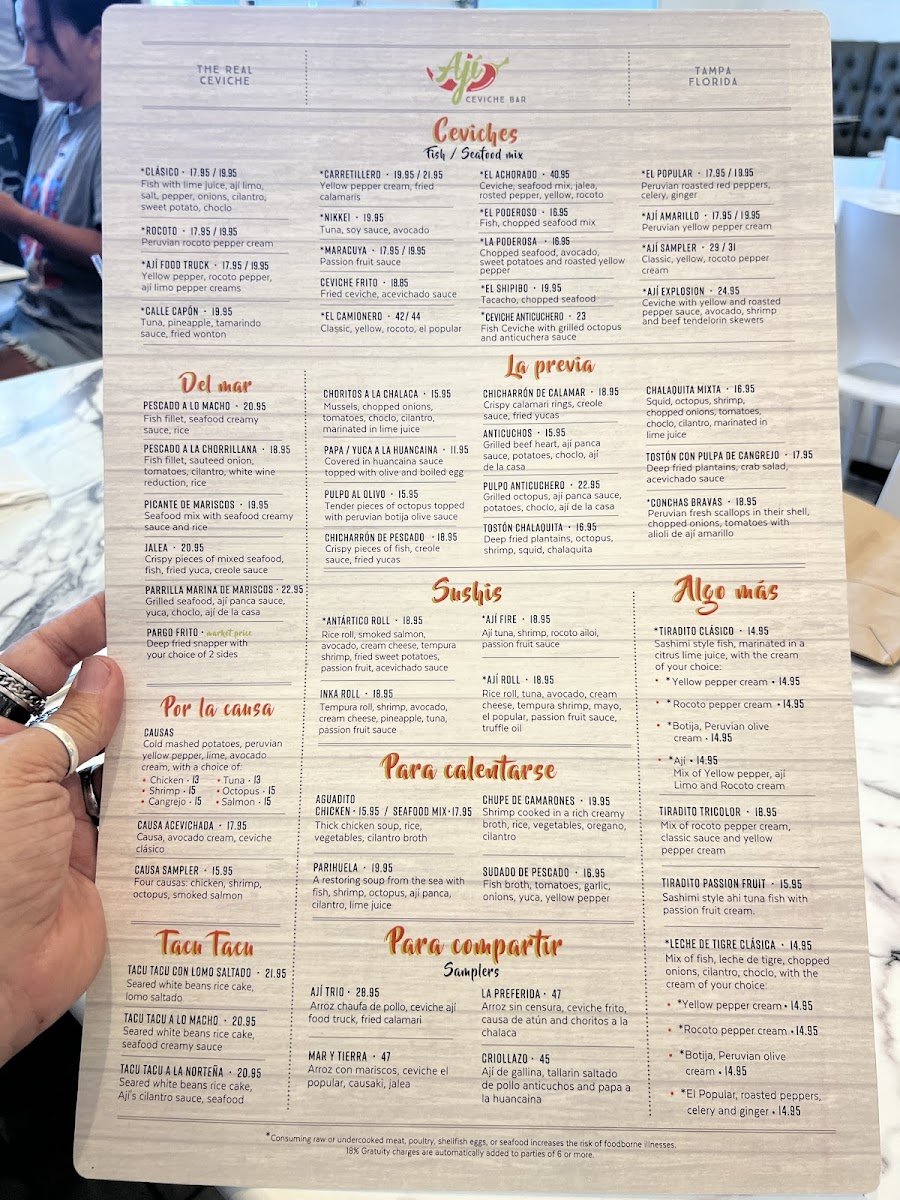 THE REAL
CEVICHE
Ají
CEVICHE BAR
TAMPA
FLORIDA
Ceviches
Fish / Seafood mix
*CLÁSICO • 17.95 / 19.95
Fish with lime juice, aji limo,
salt, pepper, onions, cilantro,
sweet potato, choclo
*ROCOTO • 17.95 / 19.95
Peruvian rocoto pepper cream
*AJÍ FOOD TRUCK • 17.95 / 19.95
Yellow pepper, rocoto pepper,
aji limo pepper creams
*CALLE CAPÓN • 19.95
Tuna, pineapple, tamarindo
sauce, fried wonton
*CARRETILLERO • 19.95 / 21.95
Yellow pepper cream, fried
calamaris
*NIKKEI • 19.95
Tuna, soy sauce, avocado
*MARACUYA • 17.95 / 19.95
Passion fruit sauce
CEVICHE FRITO • 18.85
Fried ceviche, acevichado sauce
*EL CAMIONERO • 42/ 44
Classic, yellow, rocoto, el popular
*EL ACHORADO • 40.95
Ceviche, seafood mix, jalea,
rosted pepper, yellow, rocoto
*EL PODEROSO • 16.95
Fish, chopped seafood mix
*LA PODEROSA • 16.95
Chopped seafood, avocado,
sweet potatoes and roasted yellow
pepper
*EL SHIPIBO • 19.95
Tacacho, chopped seafood
*CEVICHE ANTICUCHERO • 23
Fish Ceviche with grilled octopus
and anticuchera sauce
*EL POPULAR • 17.95 / 19.95
Peruvian roasted red peppers,
celery, ginger
*AJÍ AMARILLO • 17.95 / 19.95
Peruvian yellow pepper cream
*AJÍ SAMPLER • 29 / 31
Classic, yellow, rocoto pepper
cream
*AJÍ EXPLOSION • 24.95
Ceviche with yellow and roasted
pepper sauce, avocado, shrimp
and beef tendelorin skewers
Del mar
PESCADO A LO MACHO • 20.95
Fish fillet, seafood creamy
sauce, rice
PESCADO A LA CHORRILLANA • 18.95
Fish fillet, sauteed onion,
tomatoes, cilantro, white wine
reduction, rice
PICANTE DE MARISCOS • 19.95
Seafood mix with seafood creamy
sauce and rice
JALEA • 20.95
Crispy pieces of mixed seafood,
fish, fried yuca, creole sauce
PARRILLA MARINA DE MARISCOS • 22.95
Grilled seafood, ají panca sauce,
yuca, choclo, ají de la casa
PARGO FRITO • market price
Deep fried snapper with
your choice of 2 sides
La previa
CHORITOS A LA CHALACA • 15.95
Mussels, chopped onions,
tomatoes, choclo, cilantro,
marinated in lime juice
PAPA / YUCA A LA HUANCAINA • 11.95
Covered in huancaina sauce
topped with olive and boiled egg
PULPO AL OLIVO • 15.95
Tender pieces of octopus topped
with peruvian botija olive sauce
CHICHARRÓN DE PESCADO • 18.95
Crispy pieces of fish, creole
sauce, fried yucas
CHICHARRÓN DE CALAMAR • 18.95
Crispy calamari rings, creole
sauce, fried yucas
ANTICUCHOS • 15.95
Grilled beef heart, ají panca
sauce, potatoes, choclo, ají
de la casa
PULPO ANTICUCHERO • 22.95
Grilled octopus, ají panca sauce,
potatoes, choclo, ají de la casa
TOSTÓN CHALAQUITA • 16.95
Deep fried plantains, octopus,
shrimp, squid, chalaquita
CHALAQUITA MIXTA • 16.95
Squid, octopus, shrimp,
chopped onions, tomatoes,
choclo, cilantro, marinated in
lime juice
TOSTÓN CON PULPA DE CANGREJO • 17.95
Deep fried plantains, crab salad,
acevichado sauce
*CONCHAS BRAVAS • 18.95
Peruvian fresh scallops in their shell,
chopped onions, tomatoes with
alioli de ají amarillo
Por la causa
CAUSAS
Cold mashed potatoes, peruvian
yellow pepper, lime, avocado
cream, with a choice of:
• Chicken • 13 • Tuna • 13
• Shrimp • 15 • Octopus • 15
• Cangrejo • 15 • Salmon • 15
CAUSA ACEVICHADA • 17.95
Causa, avocado cream, ceviche
clásico
CAUSA SAMPLER • 15.95
Four causas: chicken, shrimp,
octopus, smoked salmon
Sushis
*ANTÁRTICO ROLL • 18.95
Rice roll, smoked salmon,
avocado, cream cheese, tempura
shrimp, fried sweet potatoes,
passion fruit, acevichado sauce
INKA ROLL • 18.95
Tempura roll, shrimp, avocado,
cream cheese, pineapple, tuna,
passion fruit sauce
*AJÍ FIRE • 18.95
Aji tuna, shrimp, rocoto ailoi,
passion fruit sauce
*AJÍ ROLL • 18.95
Rice roll, tuna, avocado, cream
cheese, tempura shrimp, mayo,
el popular, passion fruit sauce,
truffle oil
Algo más
*TIRADITO CLÁSICO • 14.95
Sashimi style fish, marinated in a
citrus lime juice, with the cream
of your choice:
• *Yellow pepper cream • 14.95
• *Rocoto pepper cream • 14.95
• *Botija, Peruvian olive
cream • 14.95
• *Ají • 14.95
Mix of Yellow pepper, ají
Limo and Rocoto cream
TIRADITO TRICOLOR • 18.95
Mix of rocoto pepper cream,
classic sauce and yellow
pepper cream
TIRADITO PASSION FRUIT • 15.95
Sashimi style ahi tuna fish with
passion fruit cream.
*LECHE DE TIGRE CLÁSICA • 14.95
Mix of fish, leche de tigre, chopped
onions, cilantro, choclo, with the
cream of your choice:
• *Yellow pepper cream • 14.95
• *Rocoto pepper cream • 14.95
• *Botija, Peruvian olive
cream • 14.95
• *El Popular, roasted peppers,
celery and ginger • 14.95
Para calentarse
AGUADITO
CHICKEN • 15.95 / SEAFOOD MIX • 17.95
Thick chicken soup, rice,
vegetables, cilantro broth
PARIHUELA • 19.95
A restoring soup from the sea with
fish, shrimp, octopus, aji panca,
cilantro, lime juice
CHUPE DE CAMARONES • 19.95
Shrimp cooked in a rich creamy
broth, rice, vegetables, oregano,
cilantro
SUDADO DE PESCADO • 16.95
Fish broth, tomatoes, garlic,
onions, yuca, yellow pepper
Tacu Tacu
TACU TACU CON LOMO SALTADO • 21.95
Seared white beans rice cake,
lomo saltado
TACU TACU A LO MACHO • 20.95
Seared white beans rice cake,
seafood creamy sauce
TACU TACU A LA NORTEÑA • 20.95
Seared white beans rice cake,
Ají's cilantro sauce, seafood
Para compartir
Samplers
AJÍ TRIO • 28.95
Arroz chaufa de pollo, ceviche ají
food truck, fried calamari
MAR Y TIERRA • 47
Arroz con mariscos, ceviche el
popular, causaki, jalea
LA PREFERIDA • 47
Arroz sin censura, ceviche frito,
causa de atún and choritos a la
chalaca
CRIOLLAZO • 45
Ají de gallina, tallarin saltado
de pollo anticuchos and papa a
la huancaina
*Consuming raw or undercooked meat, poultry, shellfish eggs, or seafood increases the risk of foodborne illnesses.
18% Gratuity charges are automatically added to parties of 6 or more.